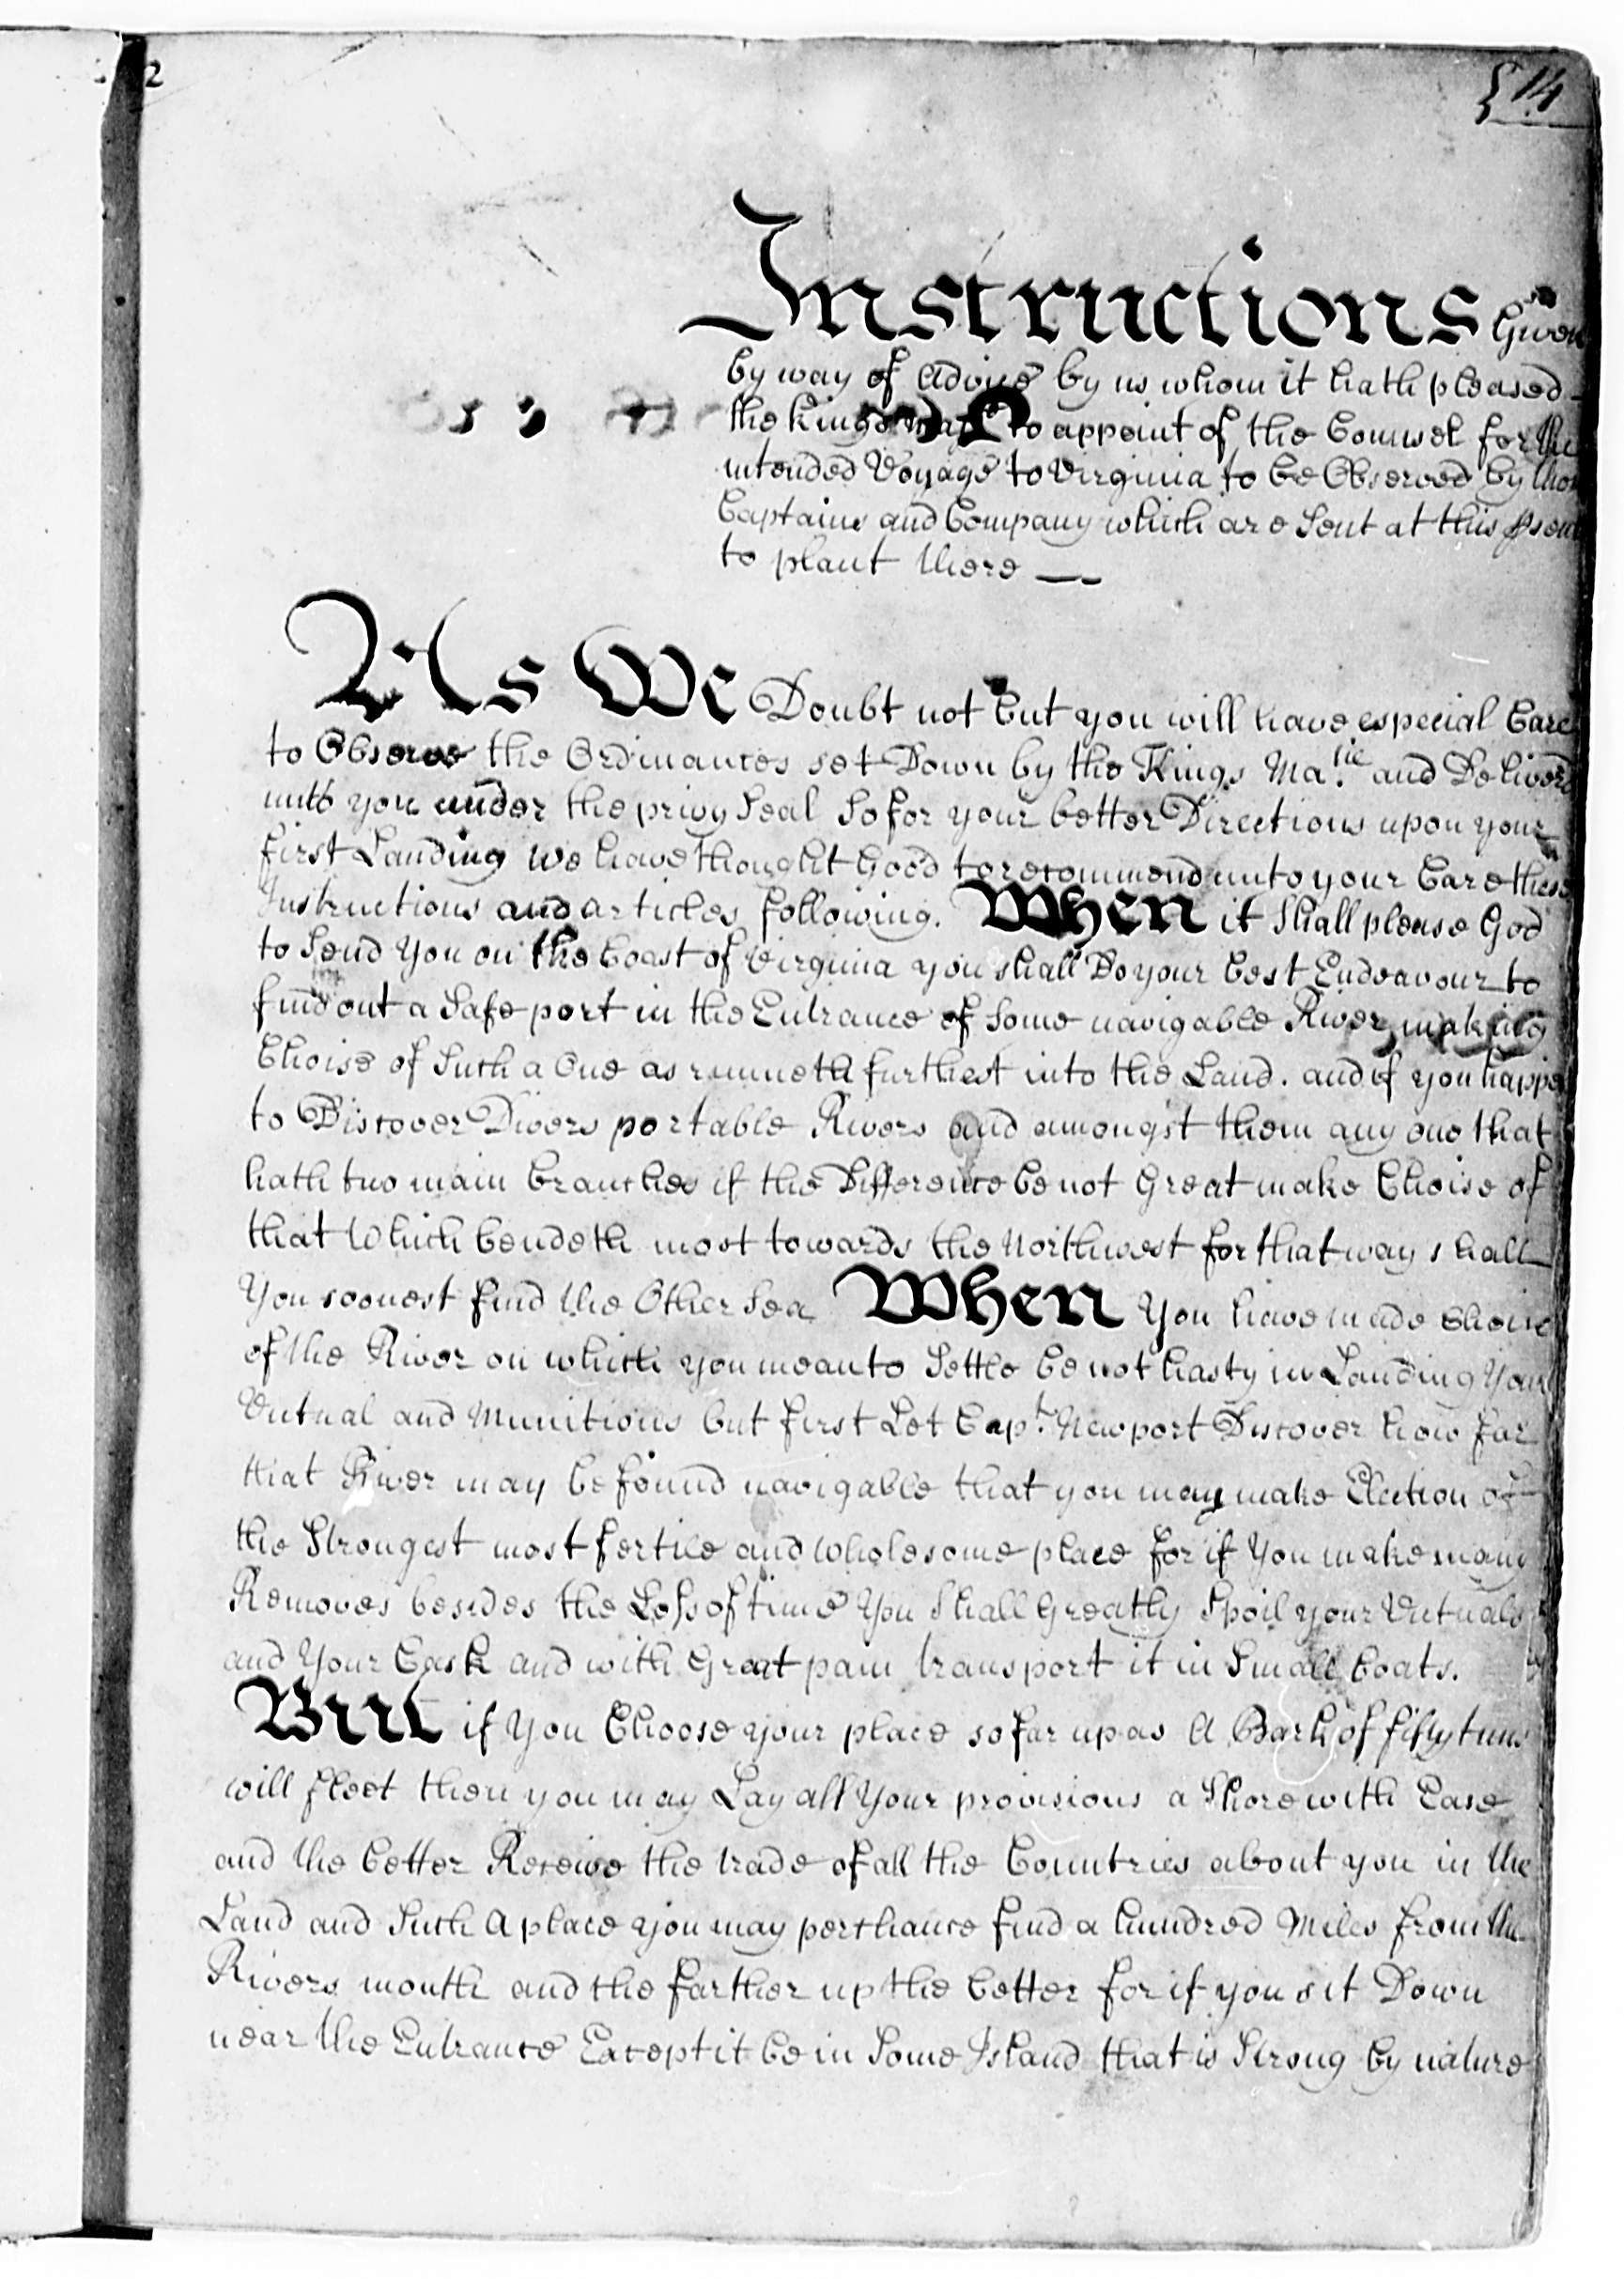 2
14
Instructions Given
by way of Advice by us whom it hath pleased
the Kings Maj to appoint of the Counsel for the
intended Voyage to Virginia to be Observed by those
Captains and Company which are Sent at this psent
to plant there
As We Doubt not but you will have especial Care
to Observe the Ordinances set Down by the Kings Ma.tie and Deliverd
unto you under the privy Seal So for your better Directions upon your
first Landing we have thought Good to recommend unto your Care these
Instructions and articles following. When it Shall please God
to Send You on the Coast of Virginia you shall Do your best Endeavour to
find out a Safe port in the Entrance of Some navigable River making
Choise of Such a One as runneth furthest into the Land. and if you happen
to Discover Divers portable Rivers and amongst them any one that
hath two main branches if the Difference be not Great make Choise of
that Which bendeth most towards the Northwest for that way shall
You soonest find the Other Sea When You have made Choise
of the River on which you mean to Settle be not hasty in Landing Your
Victual and Munitions but first Let Capt. Newport Discover how far
that River may be found navigable that you may make Election of
the Strongest most fertile and wholesome place for if You make many
Removes besides the Loss of time You Shall Greatly Spoil your Victuals
and Your Cask and with Great pain transport it in Small boats.
But if You Choose your place so far up as A Bark of fifty tuns
will fleet then you may Lay all Your provisions a Shore with Ease
and the better Receive the trade of all the Countries about you in the
Land and Such A place you may perchance find a hundred Miles from the
Rivers mouth and the farther up the better for if you sit Down
near the Entrance Except it be in Some Island that is Strong by nature